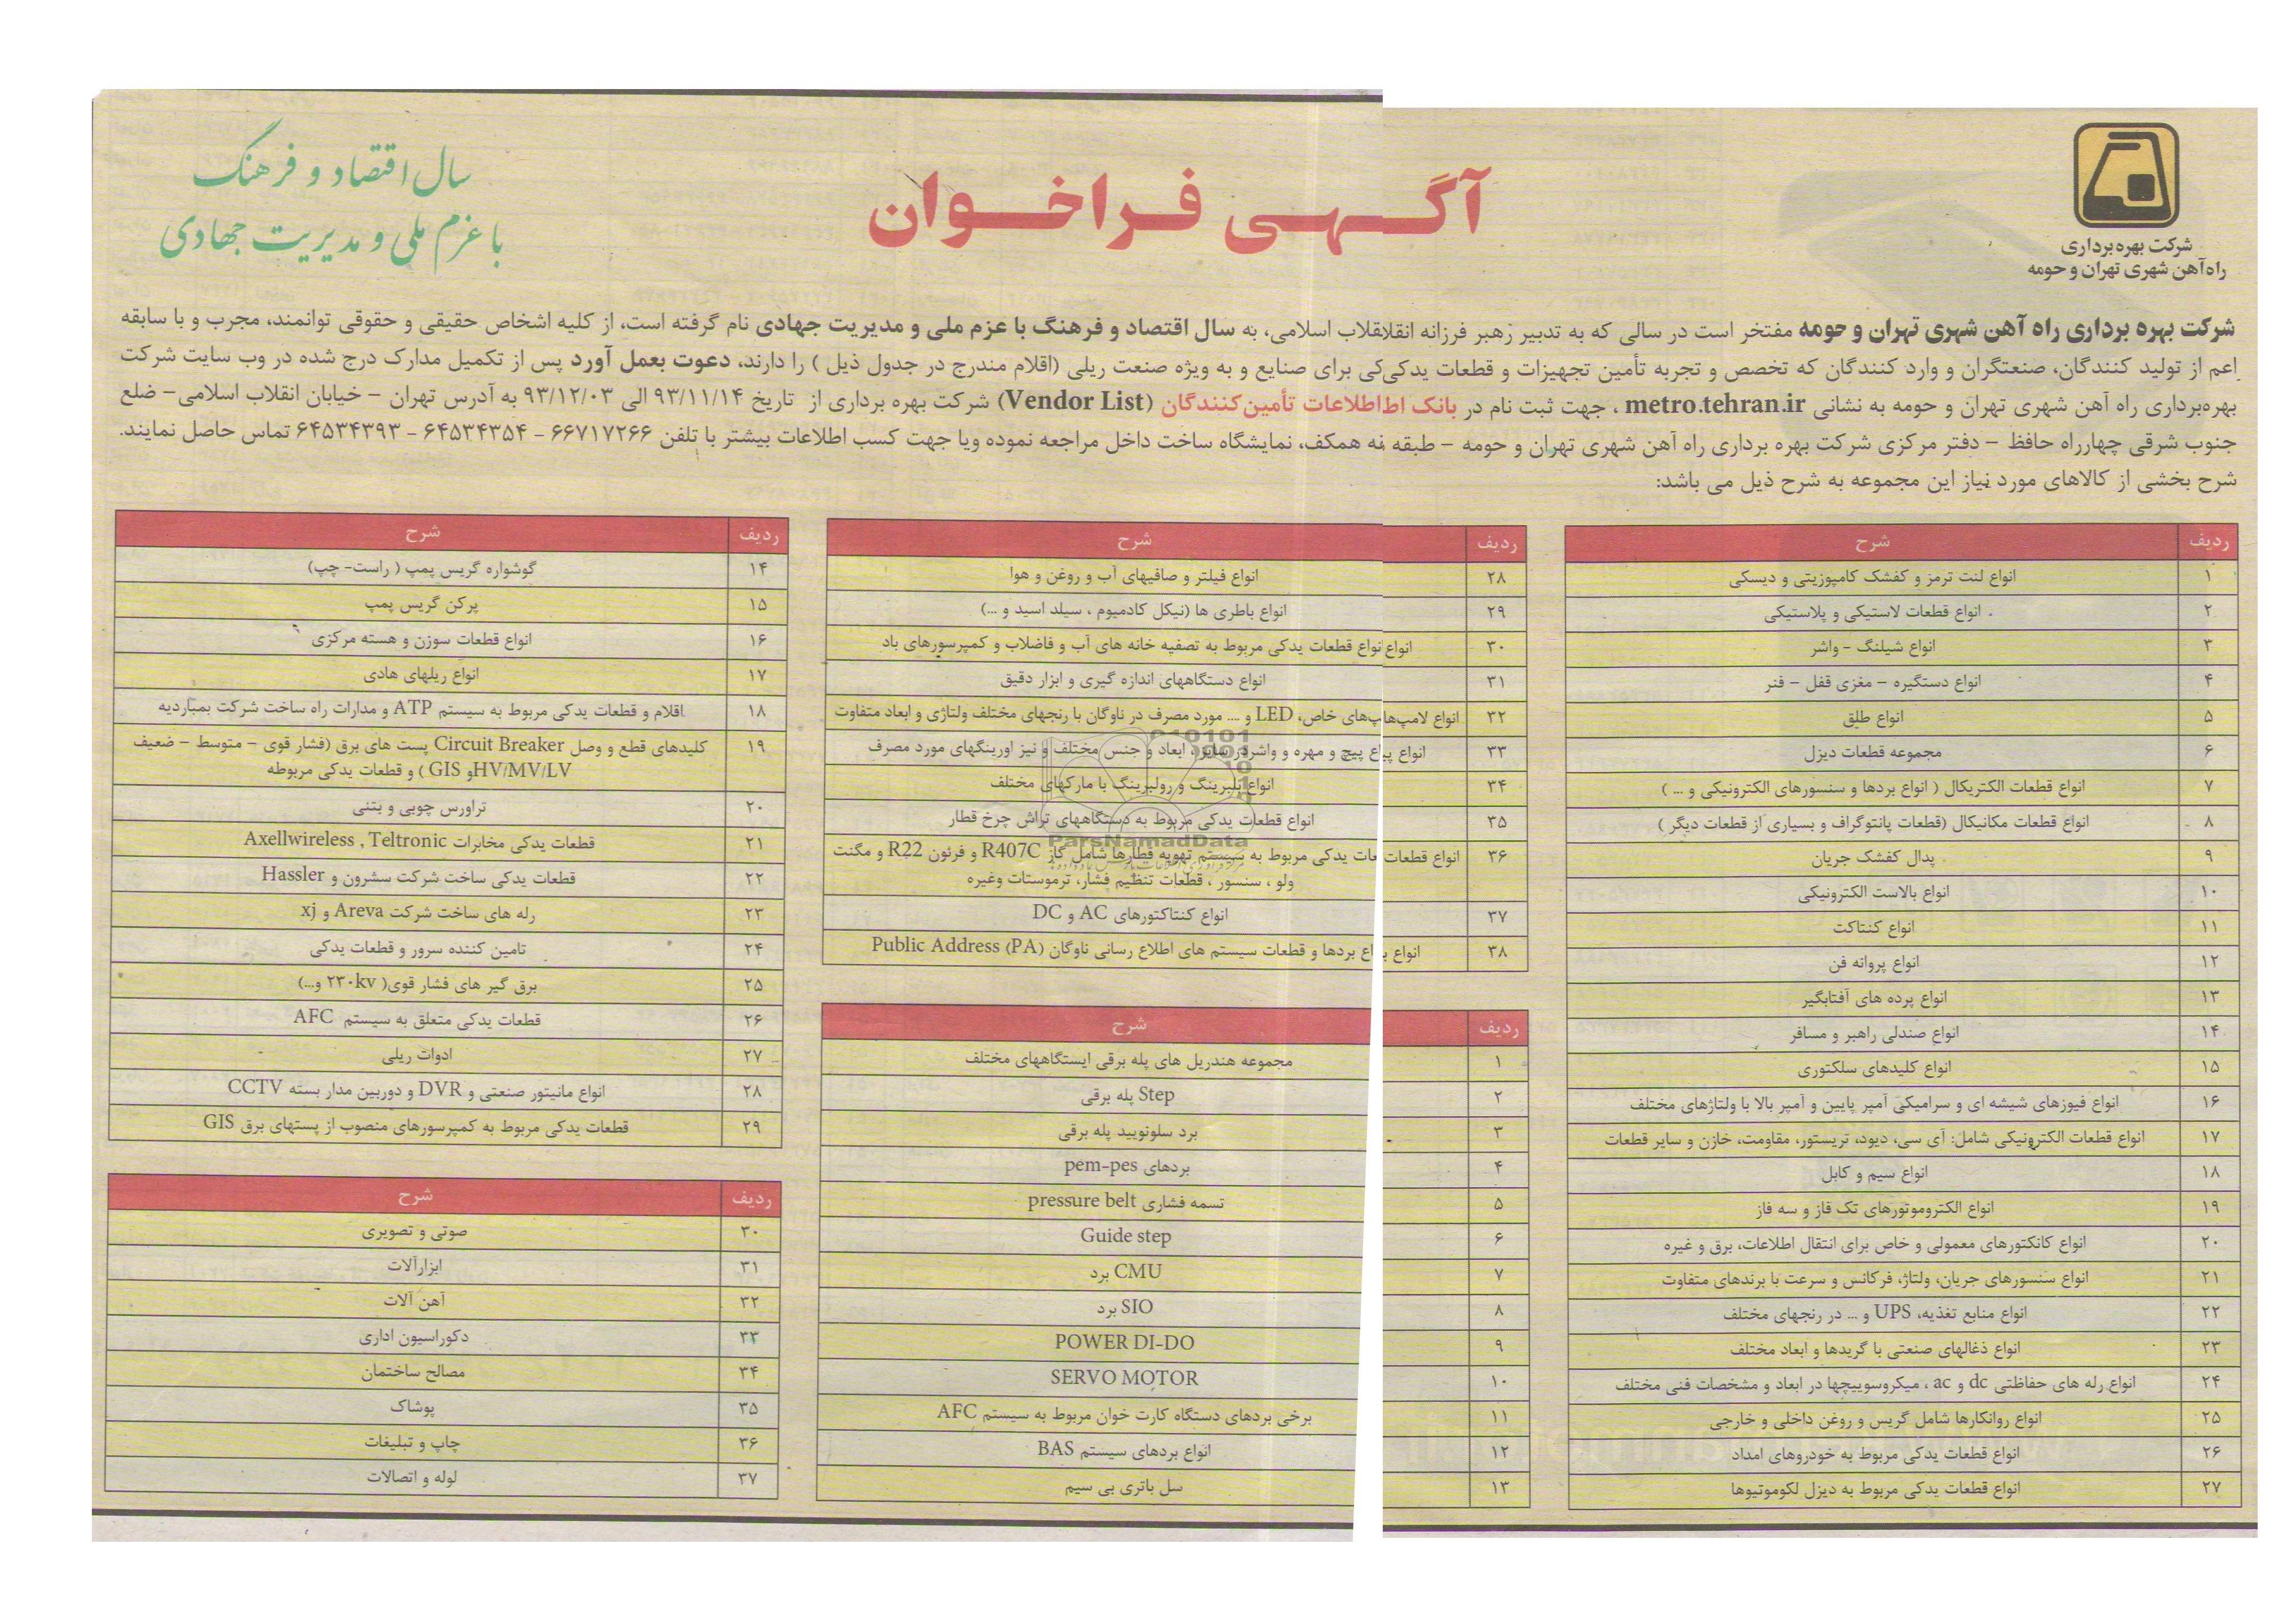 شرکت بهره‌برداری
راه‌آهن شهری تهران و حومه
آگهی فراخوان
سال اقتصاد و فرهنگ
با عزم ملی و مدیریت جهادی
شرکت بهره برداری راه آهن شهری تهران و حومه مفتخر است در سالی که به تدبیر رهبر فرزانه انقلاب اسلامی، به سال اقتصاد و فرهنگ با عزم ملی و مدیریت جهادی نام گرفته است، از کلیه اشخاص حقیقی و حقوقی توانمند، مجرب و با سابقه
اعم از تولید کنندگان، صنعتگران و وارد کنندگان که تخصص و تجربه تأمین تجهیزات و قطعات یدکی برای صنایع و به ویژه صنعت ریلی (اقلام مندرج در جدول ذیل ) را دارند، دعوت بعمل آورد پس از تکمیل مدارک درج شده در وب سایت شرکت
بهره‌برداری راه آهن شهری تهران و حومه به نشانی metro.tehran.ir ، جهت ثبت نام در بانک اطلاعات تأمین‌کنندگان (Vendor List) شرکت بهره برداری از تاریخ ۹۳/۱۱/۱۴ الی ۹۳/۱۲/۰۳ به آدرس تهران – خیابان انقلاب اسلامی– ضلع
جنوب شرقی چهارراه حافظ – دفتر مرکزی شرکت بهره برداری راه آهن شهری تهران و حومه – طبقه همکف، نمایشگاه ساخت داخل مراجعه نموده ویا جهت کسب اطلاعات بیشتر با تلفن ۶۶۷۱۷۲۶۶ – ۶۴۵۳۴۳۵۴ – ۶۴۵۳۴۳۹۳ تماس حاصل نمایند.
شرح بخشی از کالاهای مورد نیاز این مجموعه به شرح ذیل می باشد:
ردیف شرح
۱ انواع لنت ترمز و کفشک کامپوزیتی و دیسکی
۲ انواع قطعات لاستیکی و پلاستیکی
۳ انواع شیلنگ – واشر
۴ انواع دستگیره – مغزی قفل – فنر
۵ انواع طلق
۶ مجموعه قطعات دیزل
۷ انواع قطعات الکتریکال ( انواع بردها و سنسورهای الکترونیکی و ... )
۸ انواع قطعات مکانیکال (قطعات پانتوگراف و بسیاری از قطعات دیگر )
۹ پدال کفشک جریان
۱۰ انواع بالاست الکترونیکی
۱۱ انواع کنتاکت
۱۲ انواع پروانه فن
۱۳ انواع پرده های آفتابگیر
۱۴ انواع صندلی راهبر و مسافر
۱۵ انواع کلیدهای سلکتوری
۱۶ انواع فیوزهای شیشه ای و سرامیکی آمپر پایین و آمپر بالا با ولتاژهای مختلف
۱۷ انواع قطعات الکترونیکی شامل: آی سی، دیود، تریستور، مقاومت، خازن و سایر قطعات
۱۸ انواع سیم و کابل
۱۹ انواع الکتروموتورهای تک فاز و سه فاز
۲۰ انواع کانکتورهای معمولی و خاص برای انتقال اطلاعات، برق و غیره
۲۱ انواع سنسورهای جریان، ولتاژ، فرکانس و سرعت با برندهای متفاوت
۲۲ انواع منابع تغذیه، UPS و ... در رنجهای مختلف
۲۳ انواع ذغالهای صنعتی با گریدها و ابعاد مختلف
۲۴ انواع رله های حفاظتی dc و ac ، میکروسوییچها در ابعاد و مشخصات فنی مختلف
۲۵ انواع روانکارها شامل گریس و روغن داخلی و خارجی
۲۶ انواع قطعات یدکی مربوط به خودروهای امداد
۲۷ انواع قطعات یدکی مربوط به دیزل لکوموتیوها
ردیف شرح
۲۸ انواع فیلتر و صافیهای آب و روغن و هوا
۲۹ انواع باطری ها (نیکل کادمیوم ، سیلد اسید و ...)
۳۰ انواع قطعات یدکی مربوط به تصفیه خانه های آب و فاضلاب و کمپرسورهای باد
۳۱ انواع دستگاههای اندازه گیری و ابزار دقیق
۳۲ انواع لامپ‌های خاص، LED و .... مورد مصرف در ناوگان با رنجهای مختلف ولتاژی و ابعاد متفاوت
۳۳ انواع پیچ و مهره و واشر در سایز، ابعاد و جنس مختلف و نیز اورینگهای مورد مصرف
۳۴ انواع بلبرینگ و رولبرینگ با مارکهای مختلف
۳۵ انواع قطعات یدکی مربوط به دستگاههای تراش چرخ قطار
۳۶ انواع قطعات یدکی مربوط به سیستم تهویه قطارها شامل گاز R407C و فرئون R22 و مگنت
ولو ، سنسور ، قطعات تنظیم فشار، ترموستات وغیره
۳۷ انواع کنتاکتورهای AC و DC
۳۸ انواع بردها و قطعات سیستم های اطلاع رسانی ناوگان Public Address (PA)
ParsNamadData
ردیف شرح
۱ مجموعه هندریل های پله برقی ایستگاههای مختلف
۲ Step پله برقی
۳ برد سلونویید پله برقی
۴ بردهای pem-pes
۵ تسمه فشاری pressure belt
۶ Guide step
۷ CMU برد
۸ SIO برد
۹ POWER DI-DO
۱۰ SERVO MOTOR
۱۱ برخی بردهای دستگاه کارت خوان مربوط به سیستم AFC
۱۲ انواع بردهای سیستم BAS
۱۳ سل باتری بی سیم
ردیف شرح
۱۴ گوشواره گریس پمپ ( راست- چپ)
۱۵ پرکن گریس پمپ
۱۶ انواع قطعات سوزن و هسته مرکزی
۱۷ انواع ریلهای هادی
۱۸ اقلام و قطعات یدکی مربوط به سیستم ATP و مدارات راه ساخت شرکت بمباردیه
۱۹ کلیدهای قطع و وصل Circuit Breaker پست های برق (فشار قوی – متوسط – ضعیف
HV/MV/LVو GIS ) و قطعات یدکی مربوطه
۲۰ تراورس چوبی و بتنی
۲۱ قطعات یدکی مخابرات Axellwireless , Teltronic
۲۲ قطعات یدکی ساخت شرکت سشرون و Hassler
۲۳ رله های ساخت شرکت Areva و xj
۲۴ تامین کننده سرور و قطعات یدکی
۲۵ برق گیر های فشار قوی( ۲۳۰kv و...)
۲۶ قطعات یدکی متعلق به سیستم AFC
۲۷ ادوات ریلی
۲۸ انواع مانیتور صنعتی و DVR و دوربین مدار بسته CCTV
۲۹ قطعات یدکی مربوط به کمپرسورهای منصوب از پستهای برق GIS
ردیف شرح
۳۰ صوتی و تصویری
۳۱ ابزارآلات
۳۲ آهن آلات
۳۳ دکوراسیون اداری
۳۴ مصالح ساختمان
۳۵ پوشاک
۳۶ چاپ و تبلیغات
۳۷ لوله و اتصالات